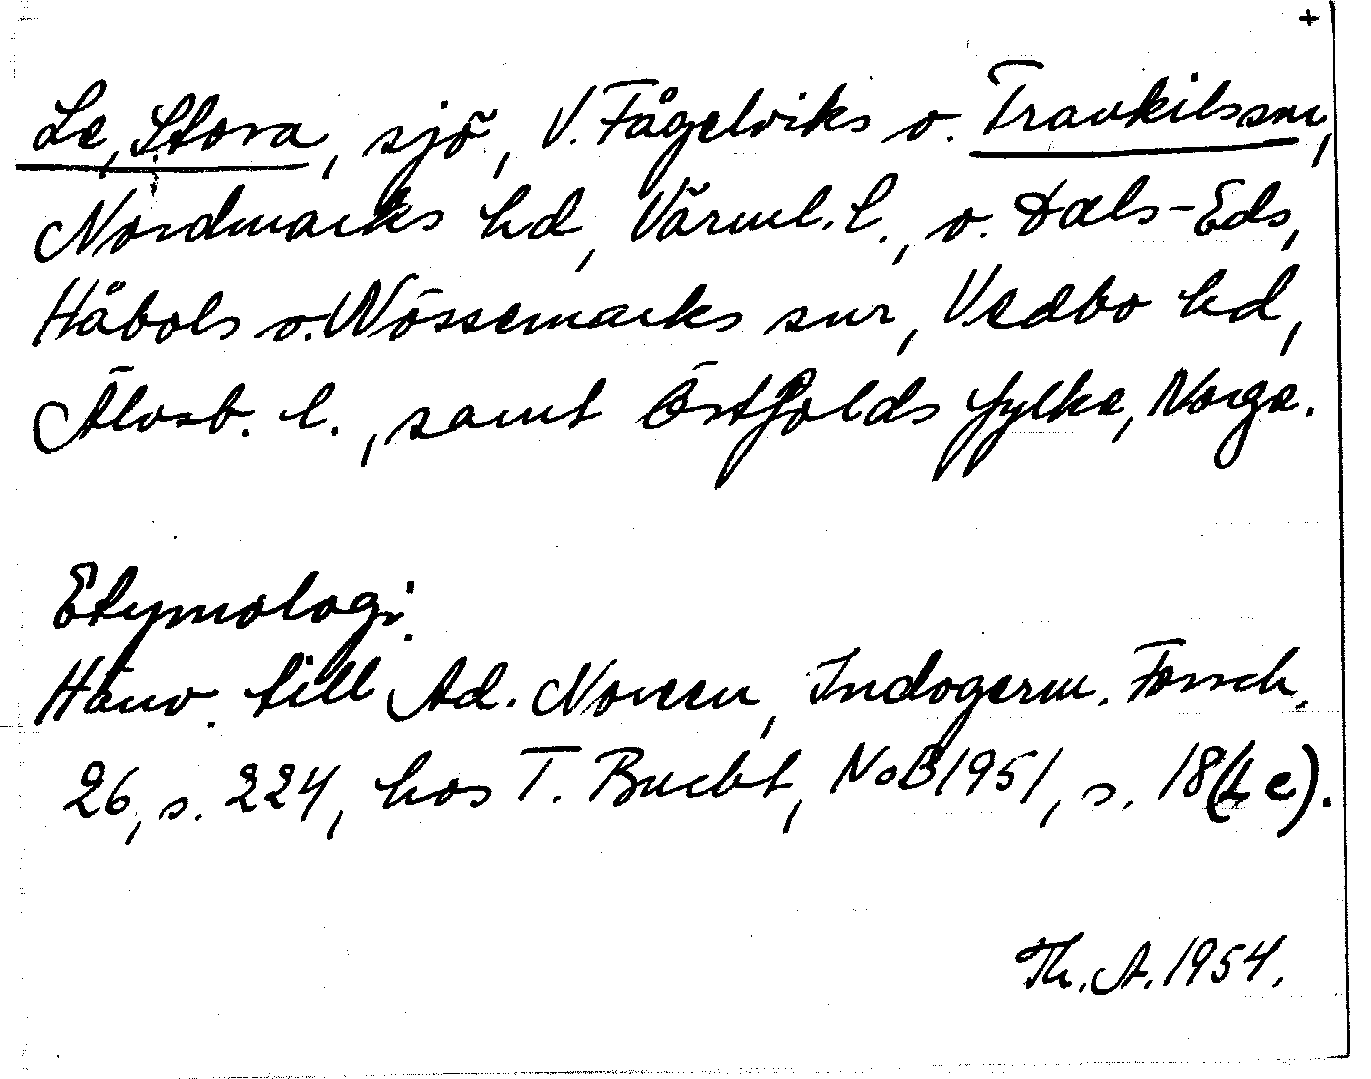 +
Le, Stora, sjö, V. Fågelviks o. Trankils snr,
Nordmarks hd, Värml. l., o. Dals-Eds,
Håbols o. Nössemarks snr, Vedbo hd,
Älvsb. l., samt Östfolds fylke, Norge.
Etymologi:
Hänv. till Ad. Noreen, Indogerm. Forsch.
26, s. 224, hos T. Bucht, NoB 1951, s. 18 (Le).
Th. A. 1954.